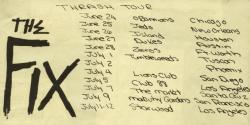 THRASH TOUR
THE FIX
June 24 O'Banions Chicago
June 25 Jeds New Orleans
June 26 Island Houston
June 27 Dukes Austin
June 28 Zero's Ft Worth
July 2 Tumbleweeds Tucson
July 3 Phoenix
July 4 Lions Club San Diego
July 5 Club '88 Los Angeles
July 7 The Market Santa Cruz
July 9 Mabuhay Gardens San Francisco
July 11-12 Starwood Los Angeles